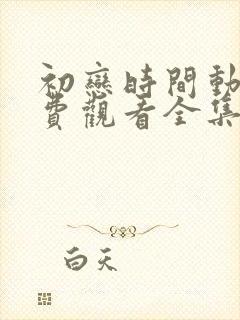 初戀時間動
費觀看全集
白天